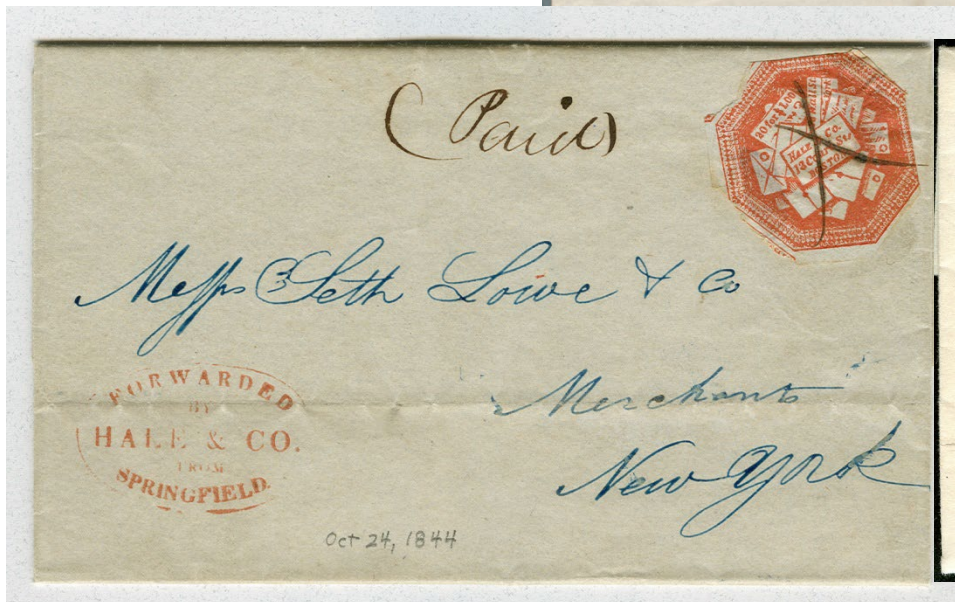 (Paid)
20 for $1.00
HALE & Co.
13 Court St.
BOSTON
Messrs Seth Lowe & Co
Merchants
New York
FORWARDED
BY
HALE & CO.
FROM
SPRINGFIELD.
Oct 24, 1844